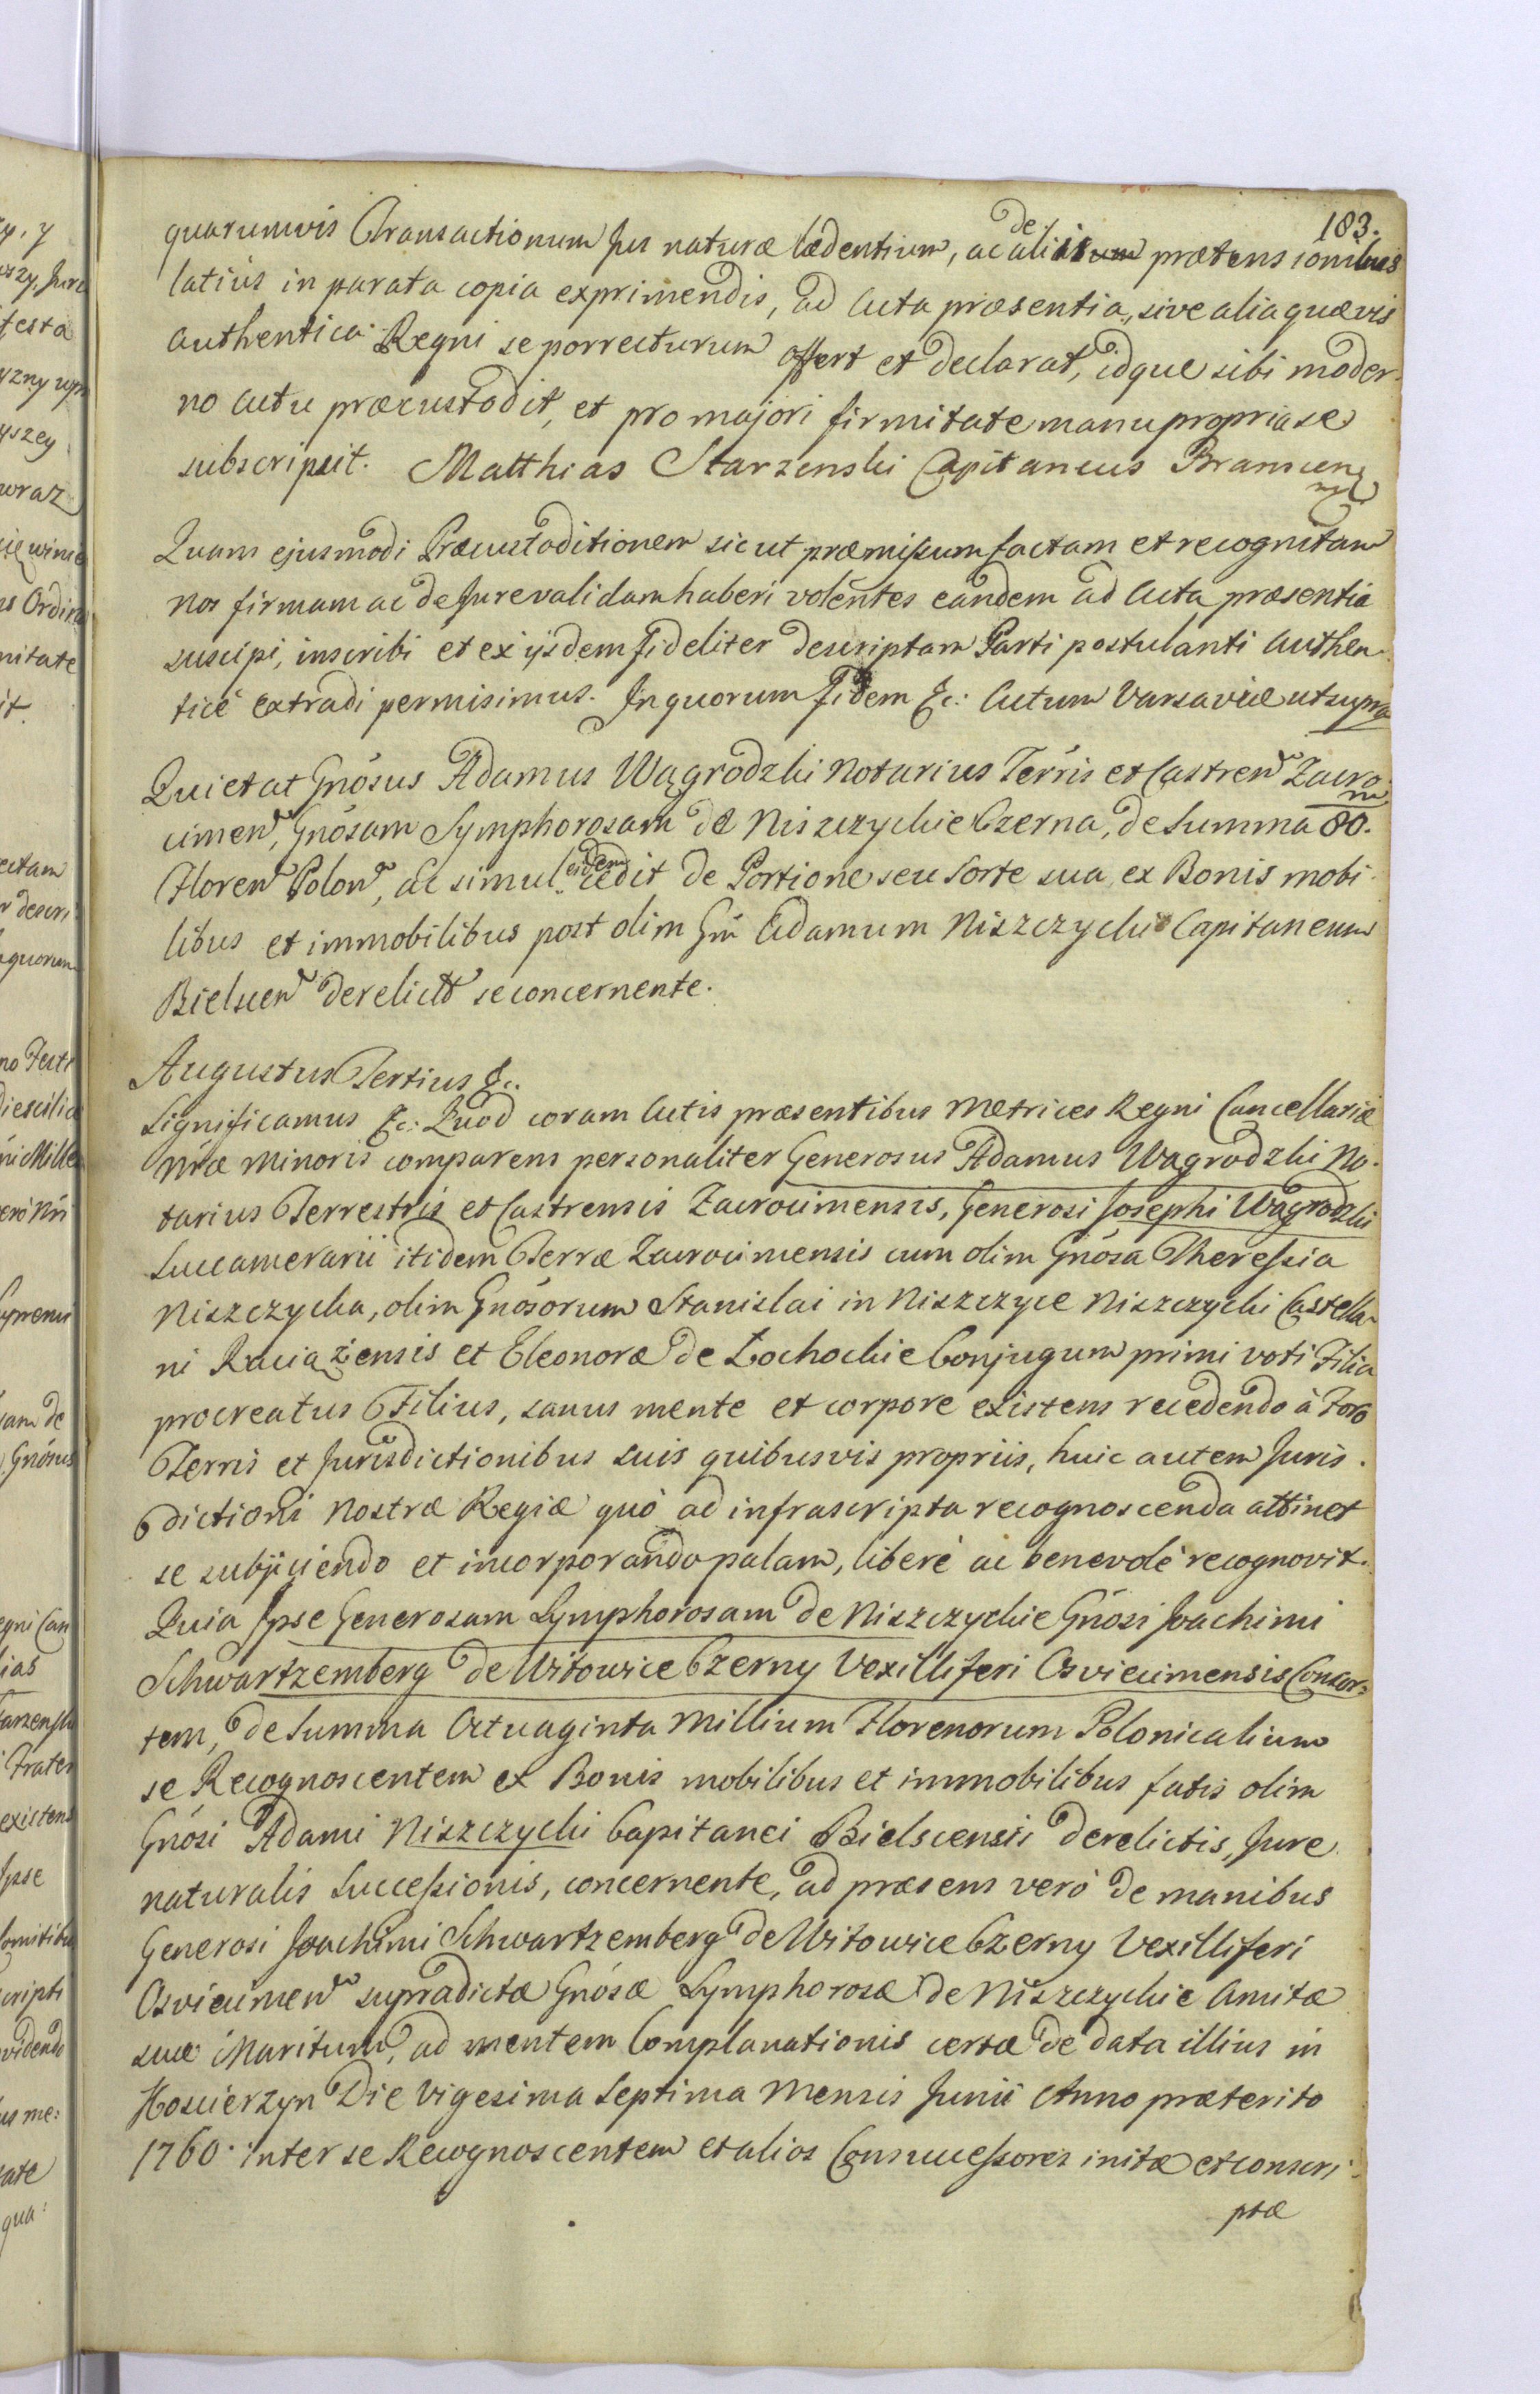 183.
quarumvis Transactionum Jus naturæ lædentium, ac de aliis prætensionibus
latius in parata copia exprimendis, ad Acta præsentia, sive alia quævis
Authentica Regni se porrecturum offert et declarat, idque sibi moder-
no Actu præcustodit, et pro majori firmitate manu propria se
subscripsit. Matthias Starzenski Capitaneus Branscen
Quam ejusmodi Præcustoditionem sicut præmissum factam et recognitam
nos firmam ac de Jure validam haberi volentes eandem ad Acta præsentia
suscipi, inscribi et ex ijsdem fideliter descriptam Parti postulanti Authen-
ticè extradi permisimus. In quorum fidem &c: Actum Varsaviæ ut supra
Quietat Gnósus Adamus Wągrodzki Notarius Terrís et Castren Zacro-
cimen, Gnósam Symphorosam de Niszczyckie Czerna, de Summa 80.
m
Floren Polon, ac simul eidem cedit de Portione seu Sorte sua ex Bonis mobi-
libus et immobilibus post olim Gm Adamum Niszczycki Capitaneum
Bielscen derelict se concernente.
Augustus Tertius &c.
Significamus &c: Quod coram Actis præsentibus Metrices Regni Cancellariæ
Nræ Minoris comparens personaliter Generosus Adamus Wągrodzki No-
tarius Terrestris et Castrensis Zacrocimensis, Generosi Josephi Wągrodzki
Succamerarii itidem Terræ Zacrocimensis cum olim Gnósa Theressia
Niszczycka, olim Gnósorum Stanislai in Niszczyce Niszczycki Castella-
ni Raciążensis et Eleonoræ de Łochockie Conjugum primi voti Filia
procreatus Filius, sanus mente et corpore existens recedendo à Foro
Terris et Jurisdictionibus suis quibusvis propriis, huic autem Juris-
dictioni Nostræ Regiæ quò ad infrascripta recognoscenda attinet
se subijciendo et incorporando palam, liberè ac benevolè recognovit.
Quia Ipse Generosam Symphorosam de Niszczyckie Gnósi Joachimi
Schwartzemberg de Witowice Czerny Vexilliferi Osviecimensis Consor-
tem, de Summa Octuaginta Millium Florenorum Polonicalium
se Recognoscentem ex Bonis mobilibus et immobilibus fatis olim
Gnósi Adami Niszczycki Capitanei Bielscensis derelictis, Jure
naturalis Successionis, concernente, ad præsens verò de manibus
Generosi Joachimi Schwartzemberg de Witowice Czerny Vexilliferi
Osviecimen supradictæ Gnósæ Symphorosæ de Niszczyckie Amitæ
suæ Maritum, ad mentem Complanationis certæ de data illius in
Koscierzyn Die Vigesima Septima Mensis Junii Anno præterito
1760. inter se Recognoscentem et alios Consuccessores initæ et conscri-
ptæ